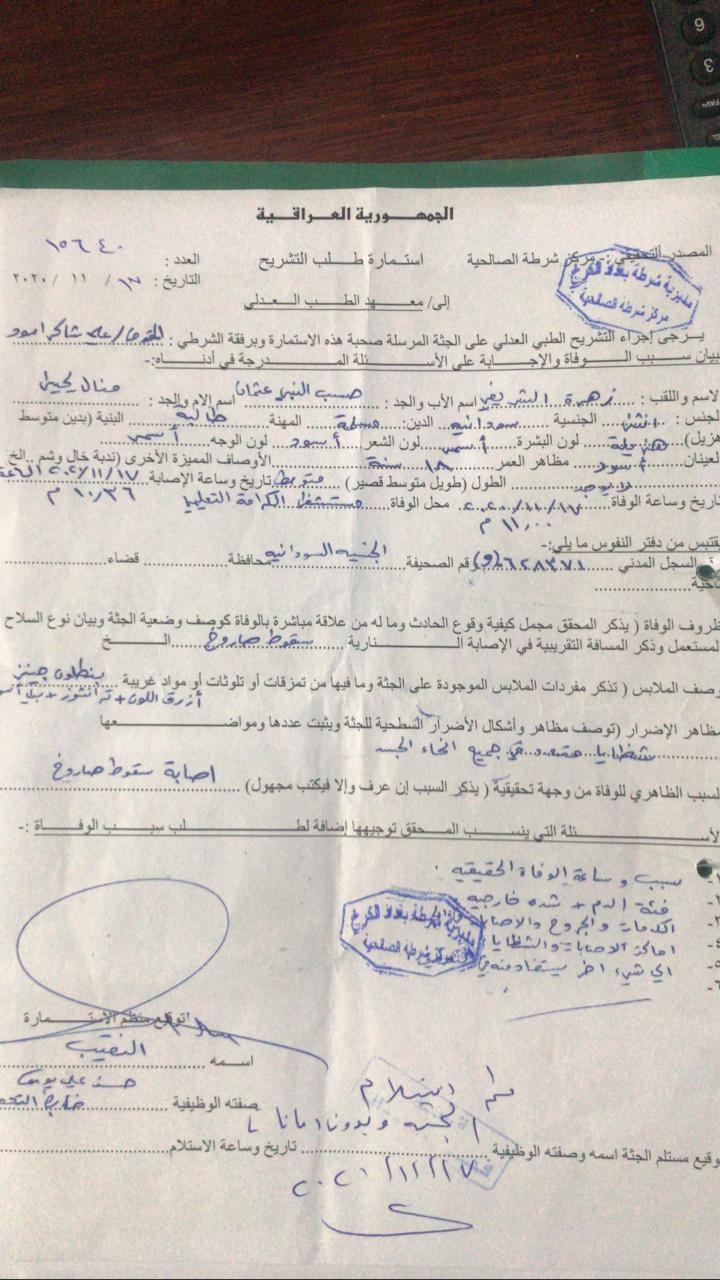 الجمهورية العراقية
المصدر التحقيقي :- مركز شرطة الصالحية
استمارة طلب التشريح
العدد : ١٥٦٤٠
التاريخ : ١٧ / ١١ / ٢٠٢٠
مديرية شرطة بغداد الكرخ
مركز شرطة الصالحية
إلى/ معهد الطب العدلي
يرجى إجراء التشريح الطبي العدلي على الجثة المرسلة صحبة هذه الاستمارة وبرفقة الشرطي : علي شاكر
بيان سبب الوفاة والإجابة على الأسئلة المدرجة في أدناه:-
لاسم واللقب : زهرة اسم الأب والجد : عثمان اسم الام والجد : منال
لجنس : انثى الجنسية سودانية الدين: مسلمة المهنة طالبة البنية (بدين متوسط
هزيل) هزيلة لون البشرة أسمر لون الشعر أسود لون الوجه أسمر
لعينان أسود مظاهر العمر ١٨ سنة الأوصاف المميزة الأخرى (ندبة خال وشم .. الخ
لا يوجد الطول (طويل متوسط قصير) متوسط تاريخ وساعة الإصابة ١٧/١١/٢٠٢٠ الساعة
١٠/٣٦ م
تاريخ وساعة الوفاة ١٧/١١/٢٠٢٠ محل الوفاة مستشفى الكرامة التعليمي
١١,٠٠ م
يقتبس من دفتر النفوس ما يلي:-
السجل المدني ٦٢٨٣٧١ رقم الصحيفة الجنسيه السودانيه محافظة قضاء
ناحية
ظروف الوفاة ( يذكر المحقق مجمل كيفية وقوع الحادث وما له من علاقة مباشرة بالوفاة كوصف وضعية الجثة وبيان نوع السلاح
لمستعمل وذكر المسافة التقريبية في الإصابة النارية سقوط صاروخ الخ
وصف الملابس ( تذكر مفردات الملابس الموجودة على الجثة وما فيها من تمزقات أو تلوثات أو مواد غريبة بنطلون جينز
أزرق اللون +
مظاهر الإضرار (توصف مظاهر وأشكال الأضرار السطحية للجثة ويثبت عددها ومواضعها
شظايا في جميع انحاء الجسد
لسبب الظاهري للوفاة من وجهة تحقيقية ( يذكر السبب إن عرف وإلا فيكتب مجهول) اصابة سقوط صاروخ
لأسئلة التي ينسب المحقق توجيهها إضافة لطلب سبب الوفاة :-
سبب وساعة الوفاة الحقيقيه .
فئة الدم + شده خارجيه
الكدمات والجروح
اماكن الاصابات والشظايا
اي شيء اخر
مديرية شرطة بغداد الكرخ
مركز شرطة الصالحية
توقيع منظم الاستمارة
اسمه النقيب
صفته الوظيفية
تم استلام
الجثه وبدون
توقيع مستلم الجثة اسمه وصفته الوظيفية تاريخ وساعة الاستلام